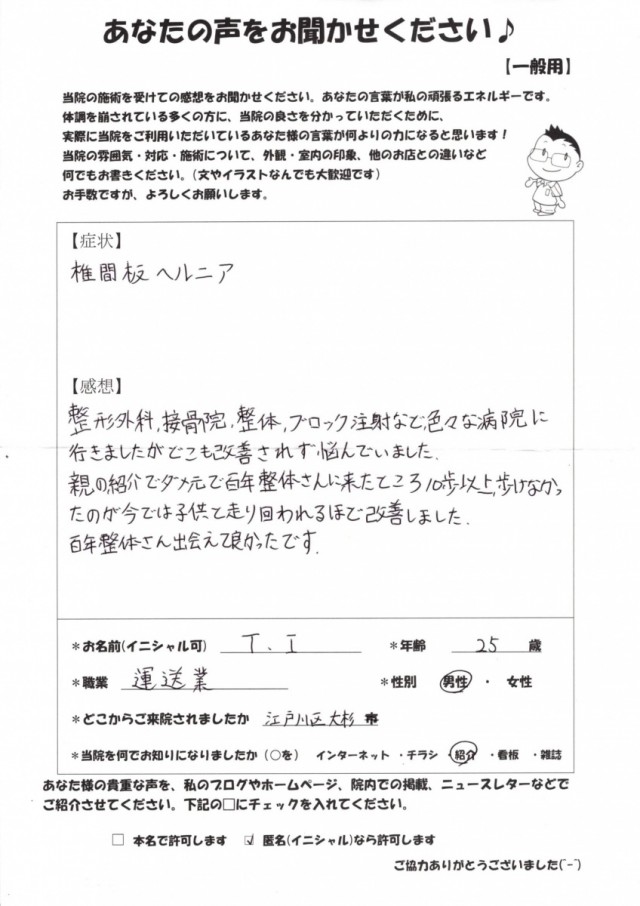 あなたの声をお聞かせください♪
【一般用】
当院の施術を受けての感想をお聞かせください。あなたの言葉が私の頑張るエネルギーです。
体調を崩されている多くの方に、当院の良さを分かっていただくために、
実際に当院をご利用いただいているあなた様の言葉が何よりの力になると思います！
当院の雰囲気・対応・施術について、外観・室内の印象、他のお店との違いなど
何でもお書きください。（文やイラストなんでも大歓迎です）
お手数ですが、よろしくお願いします。
【症状】
椎間板ヘルニア
【感想】
整形外科,接骨院,整体,ブロック注射など,色々な病院に
行きましたがどこも改善されず悩んでいました.
親の紹介でダメ元で百年整体さんに来たところ10歩以上,歩けなかっ
たのが今では子供と走り回われるほど改善しました.
百年整体さん出会えて良かったです.
＊お名前(イニシャル可) T.I ＊年齢 25 歳
＊職業 運送業 ＊性別 男性 ・ 女性
＊どこからご来院されましたか 江戸川区大杉 市
＊当院を何でお知りになりましたか（○を） インターネット ・チラシ ・紹介 ・看板 ・雑誌
あなた様の貴重な声を、私のブログやホームページ、院内での掲載、ニュースレターなどで
ご紹介させてください。下記の□にチェックを入れてください。
□ 本名で許可します ☑ 匿名(イニシャル)なら許可します
ご協力ありがとうございました(ˉ-ˉ)